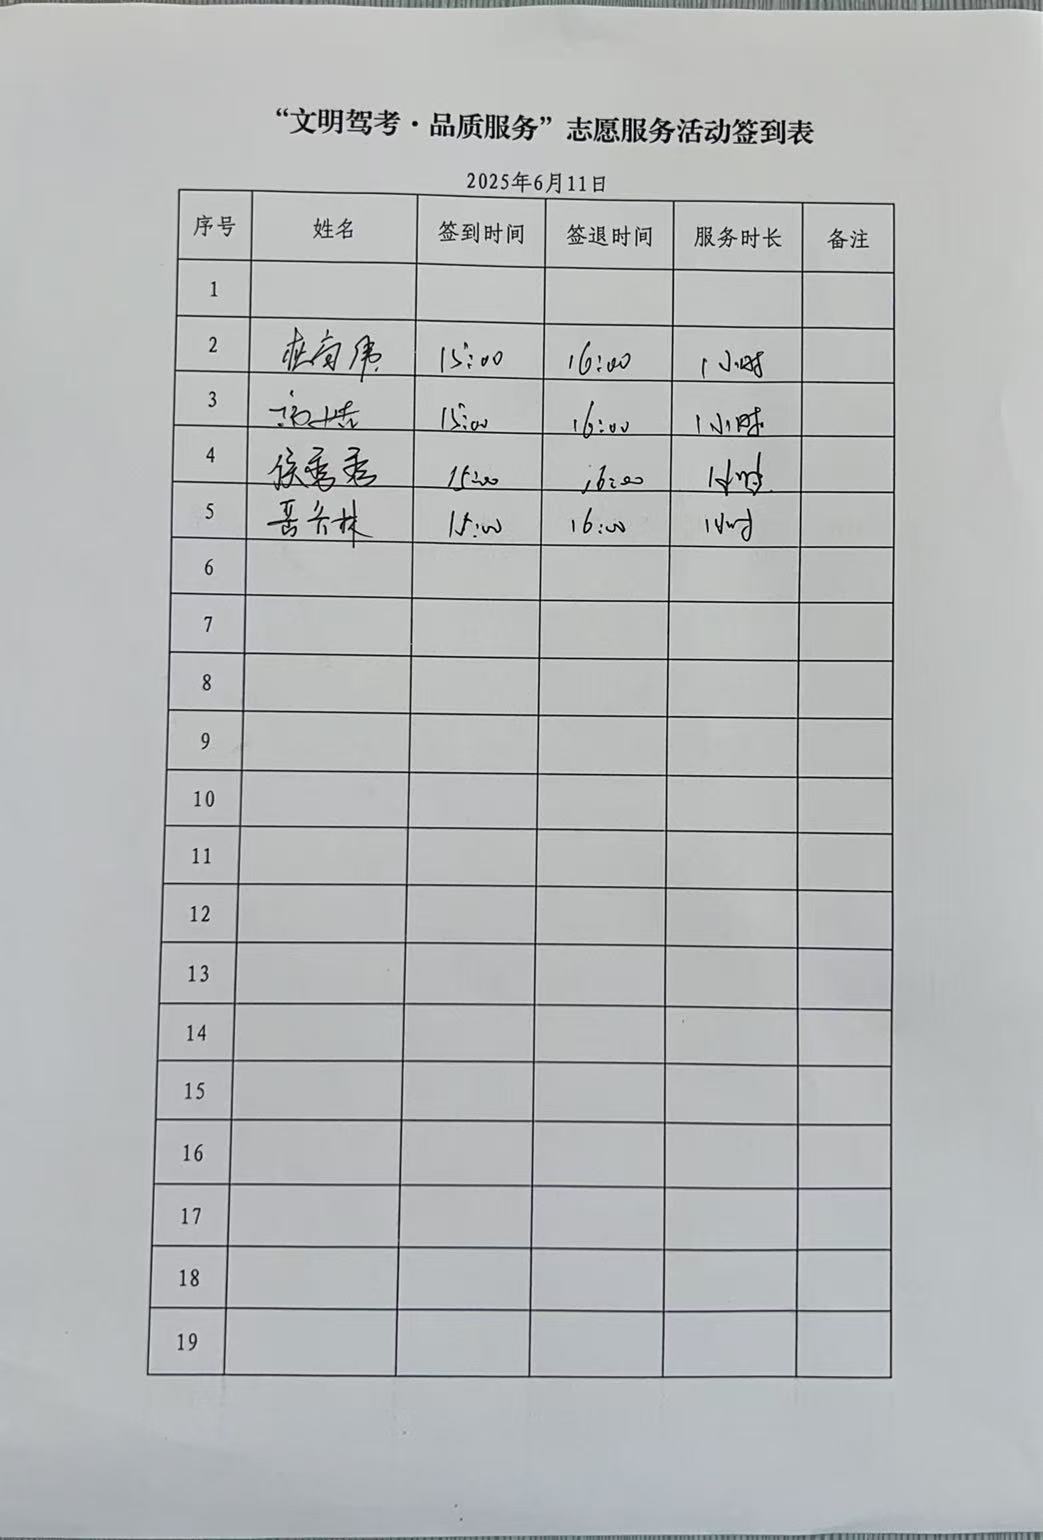 “文明驾考·品质服务”志愿服务活动签到表
2025年6月11日
序号 姓名 签到时间 签退时间 服务时长 备注
1
2 15:00 16:00 1小时
3 15:00 16:00 1小时
4 侯秀秀 15:00 16:00 1小时
5 15:00 16:00 1小时
6
7
8
9
10
11
12
13
14
15
16
17
18
19